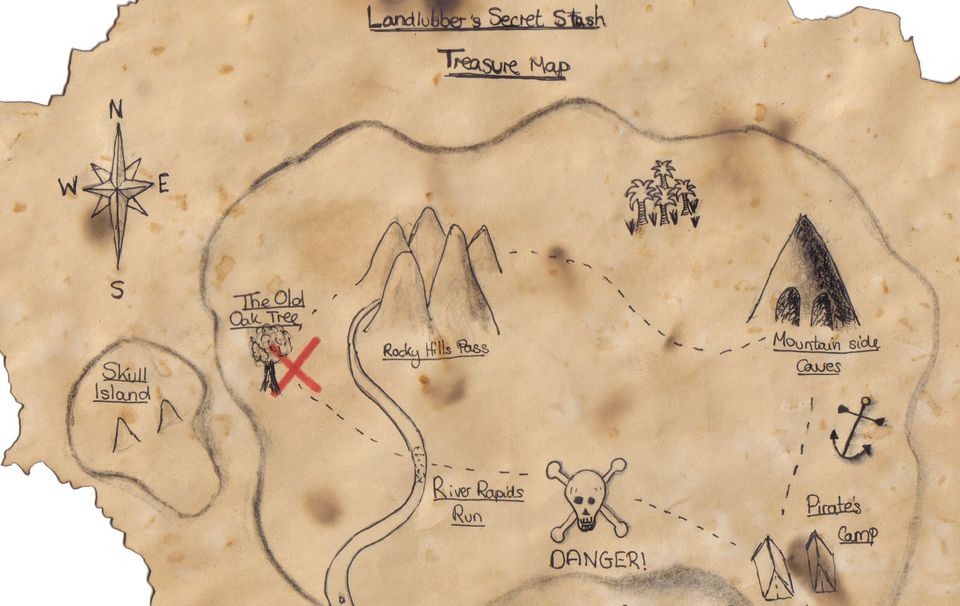 Landlubber's Secret Stash
Treasure Map
N
W E
S
The Old
Oak Tree
Rocky Hills Pass
Mountain side
Caves
Skull
Island
River Rapids
Run
Pirate's
Camp
DANGER!